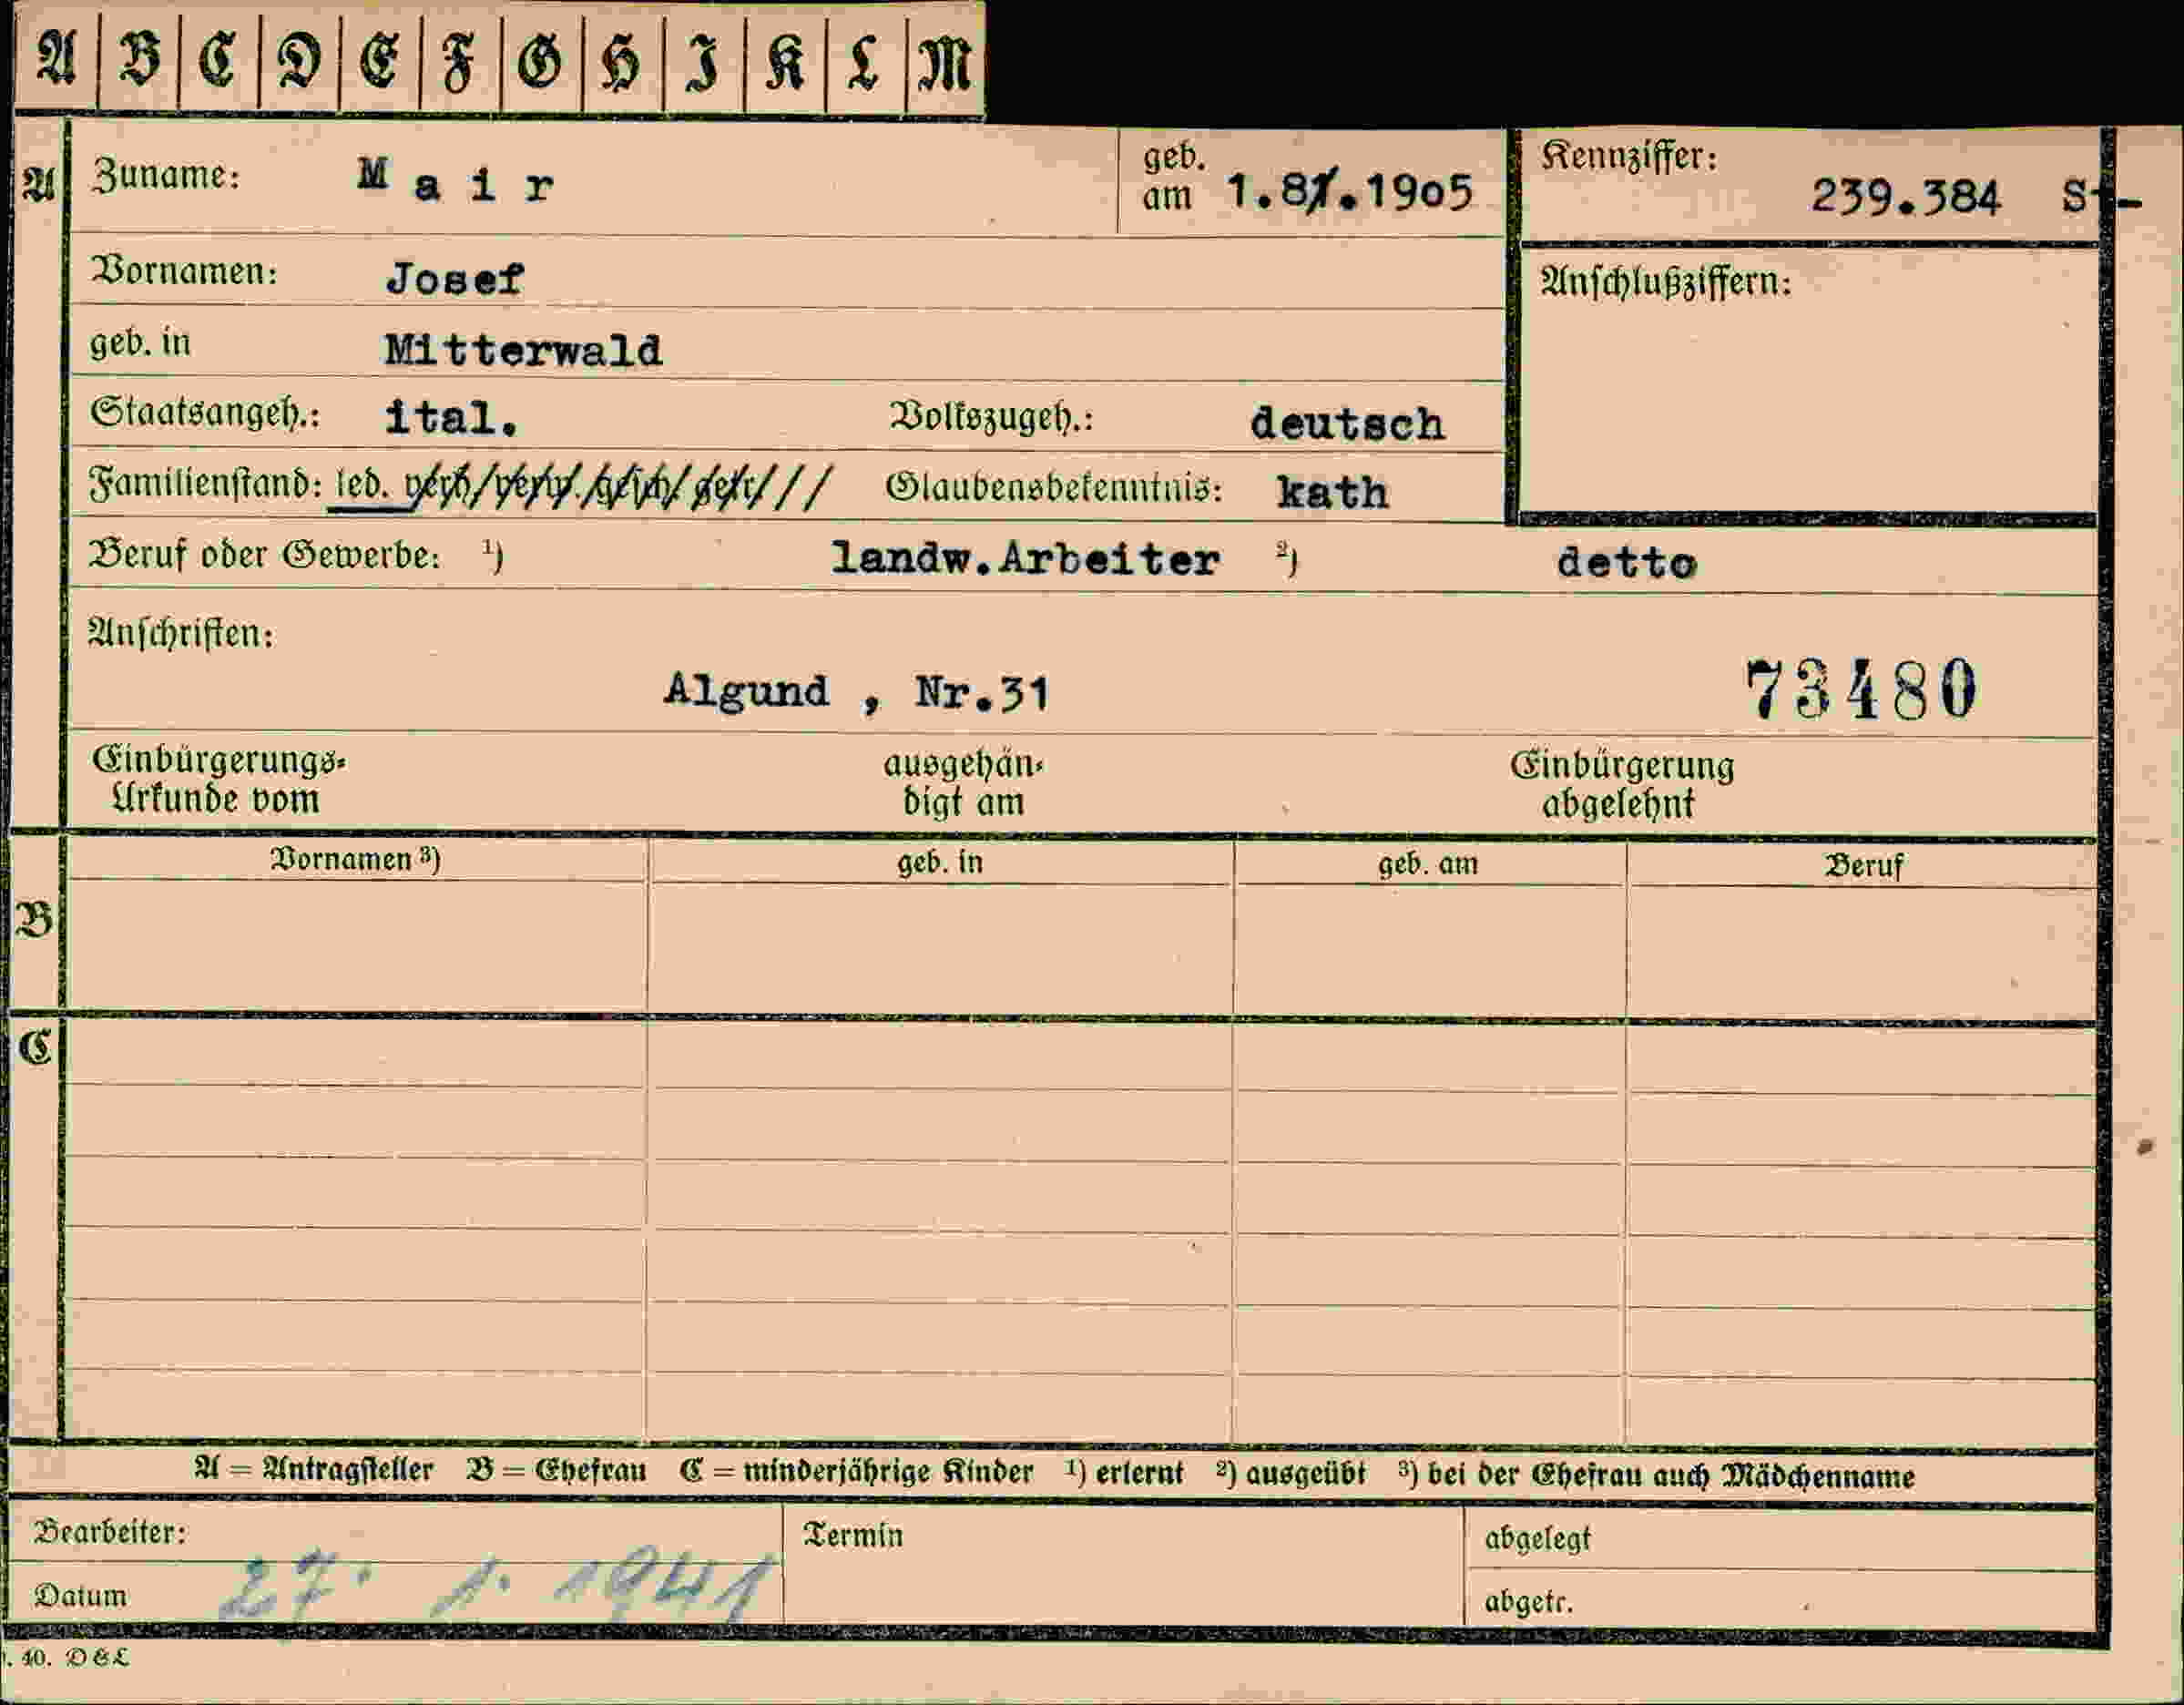 A B C D E F G H I K L M
A Zuname: Mair geb. am 1.8/.1905 Kennziffer: 239.384 St-
Vornamen: Josef Anschlußziffern:
geb. in Mitterwald
Staatsangeh.: ital. Volkszugeh.: deutsch
Familienstand: led. verh/verw./gesch/getr/// Glaubensbekenntnis: kath
Beruf oder Gewerbe: ¹) landw.Arbeiter ²) detto
Anschriften:
Algund , Nr.31 73480
Einbürgerungs- ausgehän- Einbürgerung
Urkunde vom digt am abgelehnt
Vornamen ³) geb. in geb. am Beruf
B
C
A = Antragsteller B = Ehefrau C = minderjährige Kinder ¹) erlernt ²) ausgeübt ³) bei der Ehefrau auch Mädchenname
Bearbeiter: Termin abgelegt
Datum 27. 1. 1941 abgetr.
. 40. D & L